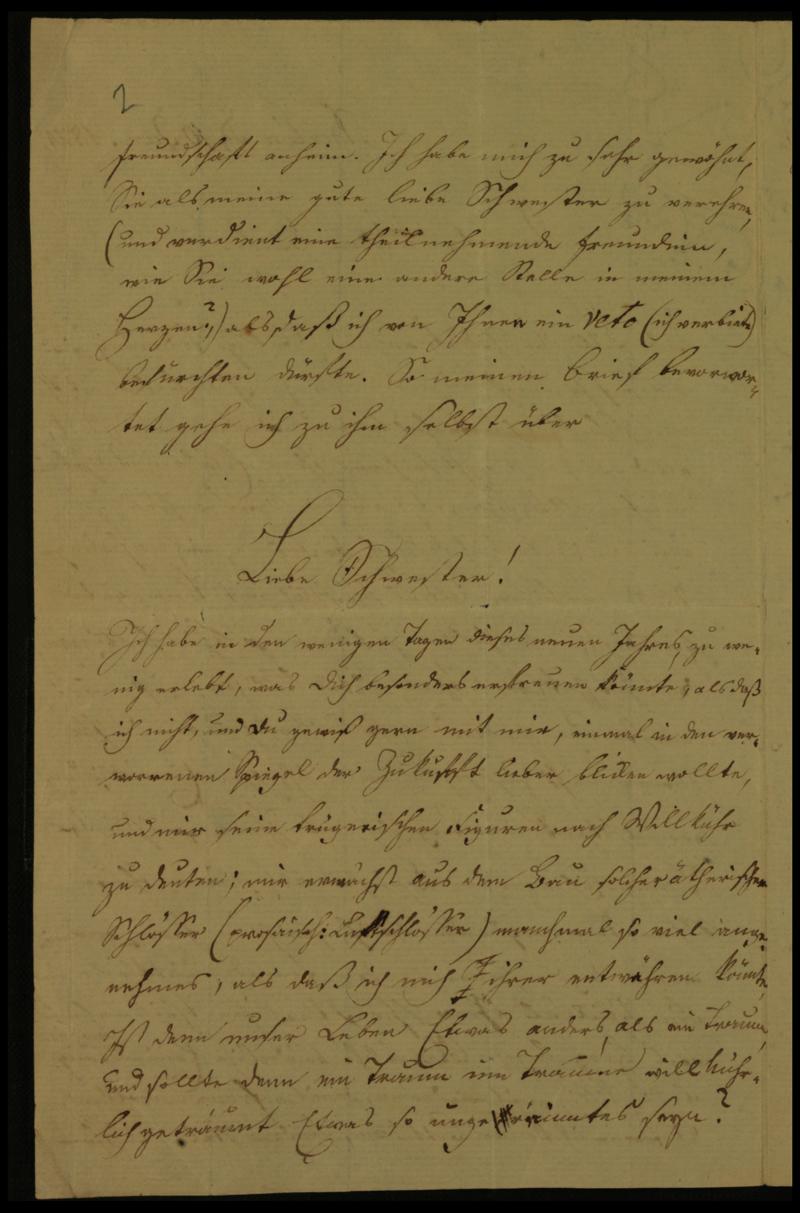 2
Freundschaft anheim. Ich habe mich zu sehr gewöhnt,
Sie als meine gute liebe Schwester zu verehren,
(und verdient eine theilnehmende Freundin,
wie Sie wohl eine andere Stelle in meinem
Herzen?,) als daß ich von Ihnen ein Veto (ich verbiete)
befürchten dürfte. So meinen Brief bevorwor-
tet gehe ich zu ihm selbst über
Liebe Schwester!
Ich habe in den wenigen Tagen dieses neuen Jahres, zu we-
nig erlebt, was Dich besonders erfreuen könnte, als daß
ich nicht, und Du gewiß gern mit mir, einmal in den ver-
worrenen Spiegel der Zukunft lieber blicken wollte,
und mir seine trügerischen Figuren nach Willkühr
zu deuten; mir erwächst aus dem Bau solcher ätherischen
Schlösser (prosaisch: Luftschlösser) manchmal so viel ange-
nehmes, als daß ich mich ihrer entwähren könnte,
Ist denn unser Leben Etwas anders, als ein Traum,
und sollte denn ein Traum im Traume willkühr-
lich geträumt Etwas so ungeräumtes seyn?